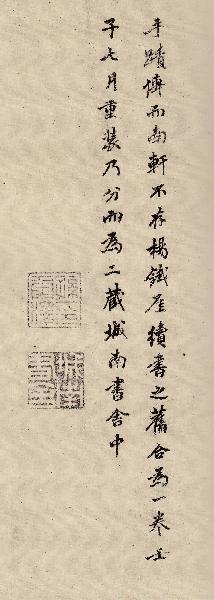 手蹟懐而南軒不存楊鐵厓續書之舊合為一卷壬
子七月重裝乃分而為二藏城南書舍中